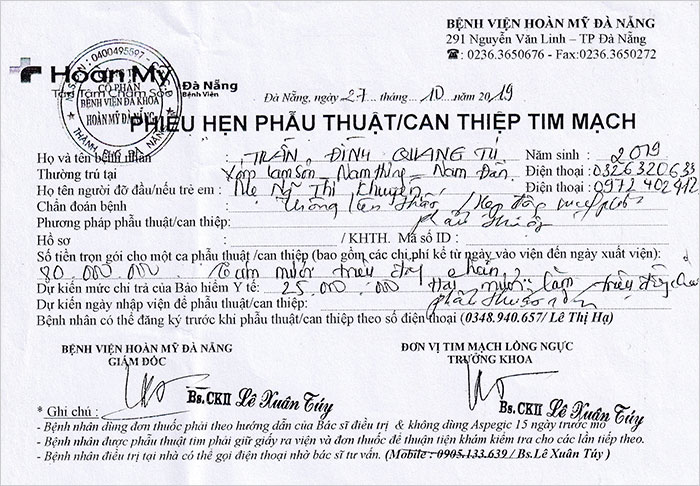 BỆNH VIỆN HOÀN MỸ ĐÀ NẴNG
291 Nguyễn Văn Linh – TP Đà Nẵng
☎: 0236.3650676 - Fax:0236.3650272
Hoàn Mỹ Đà Nẵng
Tận Tâm Chăm Sóc Bệnh Viện
M.S.D.N: 0400495597 - C.T.C.P
CỔ PHẦN
BỆNH VIỆN ĐA KHOA
HOÀN MỸ ĐÀ NẴNG
Đà Nẵng, ngày 27 tháng 10 năm 2019
PHIẾU HẸN PHẪU THUẬT/CAN THIỆP TIM MẠCH
Họ và tên bệnh nhân : TRẦN ĐÌNH QUANG TÚ Năm sinh : 2019
Thường trú tại : Xóm Lam Sơn - Nam Đàn Điện thoại : 0326320633
Họ tên người đỡ đầu/nếu trẻ em : Mẹ Thị Khuyên Điện thoại : 0972402912
Chẩn đoán bệnh : thông liên thất / Hẹp động
Phương pháp phẫu thuật/can thiệp:
Hồ sơ : / KHTH. Mã số ID :
Số tiền trọn gói cho một ca phẫu thuật /can thiệp (bao gồm các chi phí kể từ ngày vào viện đến ngày xuất viện):
80.000.000. Tám mươi triệu đg chẵn
Dự kiến mức chi trả của Bảo hiểm Y tế: 25.000.000 Hai mươi lăm triệu
Dự kiến ngày nhập viện để phẫu thuật/can thiệp:
Bệnh nhân có thể đăng ký trước khi phẫu thuật/can thiệp theo số điện thoại (0348.940.657/ Lê Thị Hạ)
BỆNH VIỆN HOÀN MỸ ĐÀ NẴNG ĐƠN VỊ TIM MẠCH LỒNG NGỰC
GIÁM ĐỐC TRƯỞNG KHOA
Bs.CKII Lê Xuân Túy Bs.CKII Lê Xuân Túy
* Ghi chú :
- Bệnh nhân dùng đơn thuốc phải theo hướng dẫn của Bác sĩ điều trị & không dùng Aspegic 15 ngày trước mổ
- Bệnh nhân được phẫu thuật tim phải giữ giấy ra viện và đơn thuốc để thuận tiện khám kiểm tra cho các lần tiếp theo.
- Bệnh nhân điều trị tại nhà có thể gọi điện thoại nhờ bác sĩ tư vấn. (Mobile : 0905.133.639 / Bs.Lê Xuân Túy )